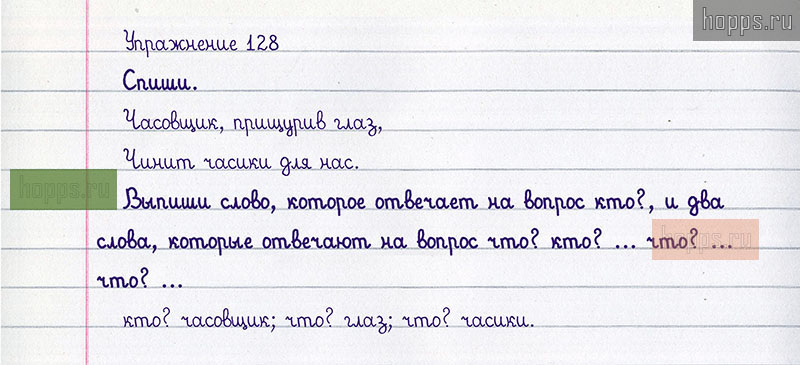 hopps.ru
Упражнение 128
Спиши.
Часовщик, прищурив глаз,
Чинит часики для нас.
hopps.ru
Выпиши слово, которое отвечает на вопрос кто?, и два
слова, которые отвечают на вопрос что? кто? ... что? ...
hopps.ru
что? ...
кто? часовщик; что? глаз; что? часики.